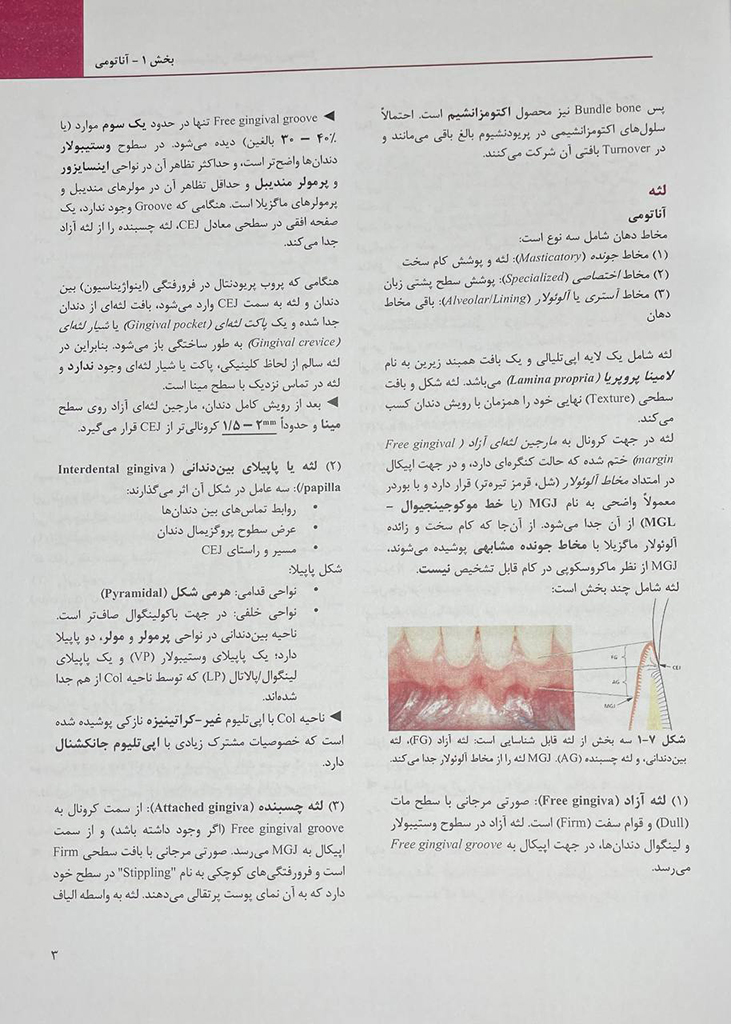 بخش ۱ - آناتومی
پس Bundle bone نیز محصول اکتومزانشیم است. احتمالاً
سلول‌های اکتومزانشیمی در پریودنشیوم بالغ باقی می‌مانند و
در Turnover بافتی آن شرکت می‌کنند.
لثه
آناتومی
مخاط دهان شامل سه نوع است:
(۱) مخاط جونده (Masticatory): لثه و پوشش کام سخت
(۲) مخاط اختصاصی (Specialized): پوشش سطح پشتی زبان
(۳) مخاط آستری یا آلوئولار (Alveolar/Lining): باقی مخاط
دهان
لثه شامل یک لایه اپی‌تلیالی و یک بافت همبند زیرین به نام
لامینا پروپریا (Lamina propria) می‌باشد. لثه شکل و بافت
سطحی (Texture) نهایی خود را همزمان با رویش دندان کسب
می‌کند.
لثه در جهت کرونال به مارجین لثه‌ای آزاد (Free gingival
margin) ختم شده که حالت کنگره‌ای دارد، و در جهت اپیکال
در امتداد مخاط آلوئولار (شل، قرمز تیره‌تر) قرار دارد و با بوردر
معمولاً واضحی به نام MGJ (یا خط موکوجینجیوال -
MGL) از آن جدا می‌شود. از آن‌جا که کام سخت و زائده
آلوئولار ماگزیلا با مخاط جونده مشابهی پوشیده می‌شوند،
MGJ از نظر ماکروسکوپی در کام قابل تشخیص نیست.
لثه شامل چند بخش است:
FG
CEJ
AG
MGJ
شکل ۷-۱ سه بخش از لثه قابل شناسایی است: لثه آزاد (FG)، لثه
بین‌دندانی، و لثه چسبنده (AG). MGJ لثه را از مخاط آلوئولار جدا می‌کند.
(۱) لثه آزاد (Free gingiva): صورتی مرجانی با سطح مات
(Dull) و قوام سفت (Firm) است. لثه آزاد در سطوح وستیبولار
و لینگوال دندان‌ها، در جهت اپیکال به Free gingival groove
می‌رسد.
◄ Free gingival groove تنها در حدود یک سوم موارد (یا
۴۰٪ – ۳۰ بالغین) دیده می‌شود. در سطوح وستیبولار
دندان‌ها واضح‌تر است، و حداکثر تظاهر آن در نواحی اینسایزور
و پرمولر مندیبل و حداقل تظاهر آن در مولرهای مندیبل و
پرمولرهای ماگزیلا است. هنگامی که Groove وجود ندارد، یک
صفحه افقی در سطحی معادل CEJ، لثه چسبنده را از لثه آزاد
جدا می‌کند.
هنگامی که پروب پریودنتال در فرورفتگی (اینواژیناسیون) بین
دندان و لثه به سمت CEJ وارد می‌شود، بافت لثه‌ای از دندان
جدا شده و یک پاکت لثه‌ای (Gingival pocket) یا شیار لثه‌ای
(Gingival crevice) به طور ساختگی باز می‌شود. بنابراین در
لثه سالم از لحاظ کلینیکی، پاکت یا شیار لثه‌ای وجود ندارد و
لثه در تماس نزدیک با سطح مینا است.
◄ بعد از رویش کامل دندان، مارجین لثه‌ای آزاد روی سطح
مینا و حدوداً ۱/۵ – ۲mm کرونالی‌تر از CEJ قرار می‌گیرد.
(۲) لثه یا پاپیلای بین‌دندانی (Interdental gingiva
/papilla): سه عامل در شکل آن اثر می‌گذارند:
• روابط تماس‌های بین دندان‌ها
• عرض سطوح پروگزیمال دندان
• مسیر و راستای CEJ
شکل پاپیلا:
• نواحی قدامی: هرمی شکل (Pyramidal)
• نواحی خلفی: در جهت باکولینگوال صاف‌تر است.
ناحیه بین‌دندانی در نواحی پرمولر و مولر، دو پاپیلا
دارد؛ یک پاپیلای وستیبولار (VP) و یک پاپیلای
لینگوال/پالاتال (LP) که توسط ناحیه Col از هم جدا
شده‌اند.
◄ ناحیه Col با اپی‌تلیوم غیر-کراتینیزه نازکی پوشیده شده
است که خصوصیات مشترک زیادی با اپی‌تلیوم جانکشنال
دارد.
(۳) لثه چسبنده (Attached gingiva): از سمت کرونال به
Free gingival groove (اگر وجود داشته باشد) و از سمت
اپیکال به MGJ می‌رسد. صورتی مرجانی با بافت سطحی Firm
است و فرورفتگی‌های کوچکی به نام "Stippling" در سطح خود
دارد که به آن نمای پوست پرتقالی می‌دهند. لثه به واسطه الیاف
۳